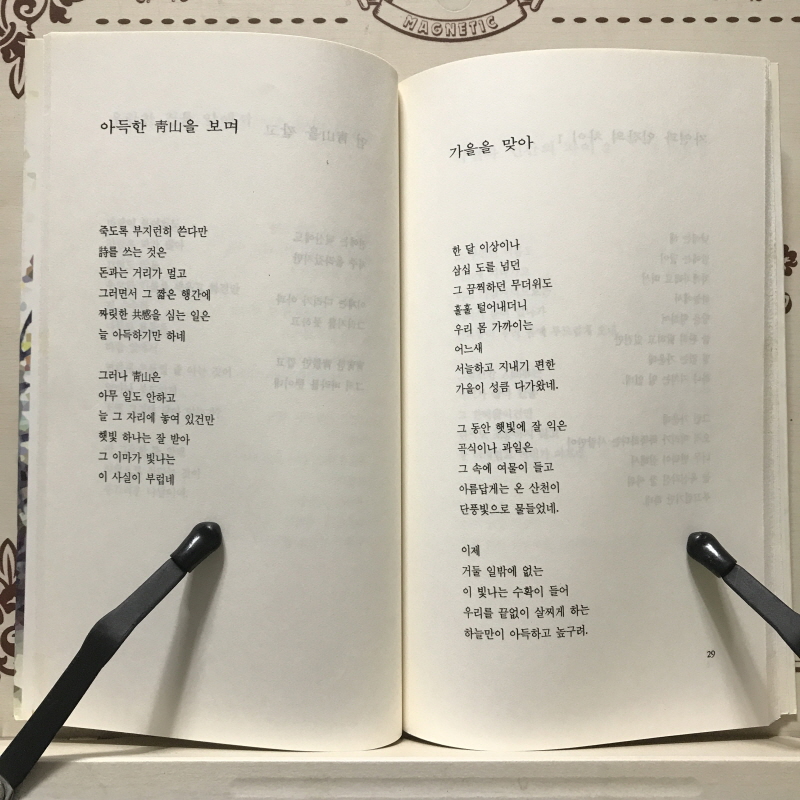 MAGNETIC
아득한 靑山을 보며
죽도록 부지런히 쓴다만
詩를 쓰는 것은
돈과는 거리가 멀고
그러면서 그 짧은 행간에
짜릿한 共感을 심는 일은
늘 아득하기만 하네
그러나 靑山은
아무 일도 안하고
늘 그 자리에 놓여 있건만
햇빛 하나는 잘 받아
그 이마가 빛나는
이 사실이 부럽네
가을을 맞아
한 달 이상이나
삼십 도를 넘던
그 끔찍하던 무더위도
훌훌 털어내더니
우리 몸 가까이는
어느새
서늘하고 지내기 편한
가을이 성큼 다가왔네.
그 동안 햇빛에 잘 익은
곡식이나 과일은
그 속에 여물이 들고
아름답게는 온 산천이
단풍빛으로 물들었네.
이제
거둘 일밖에 없는
이 빛나는 수확이 들어
우리를 끝없이 살찌게 하는
하늘만이 아득하고 높구려.
29